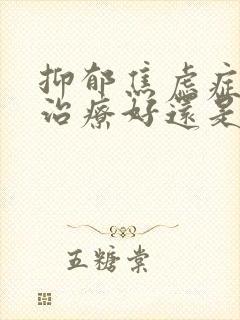 抑郁焦虑症
治療好還是
五糖棠